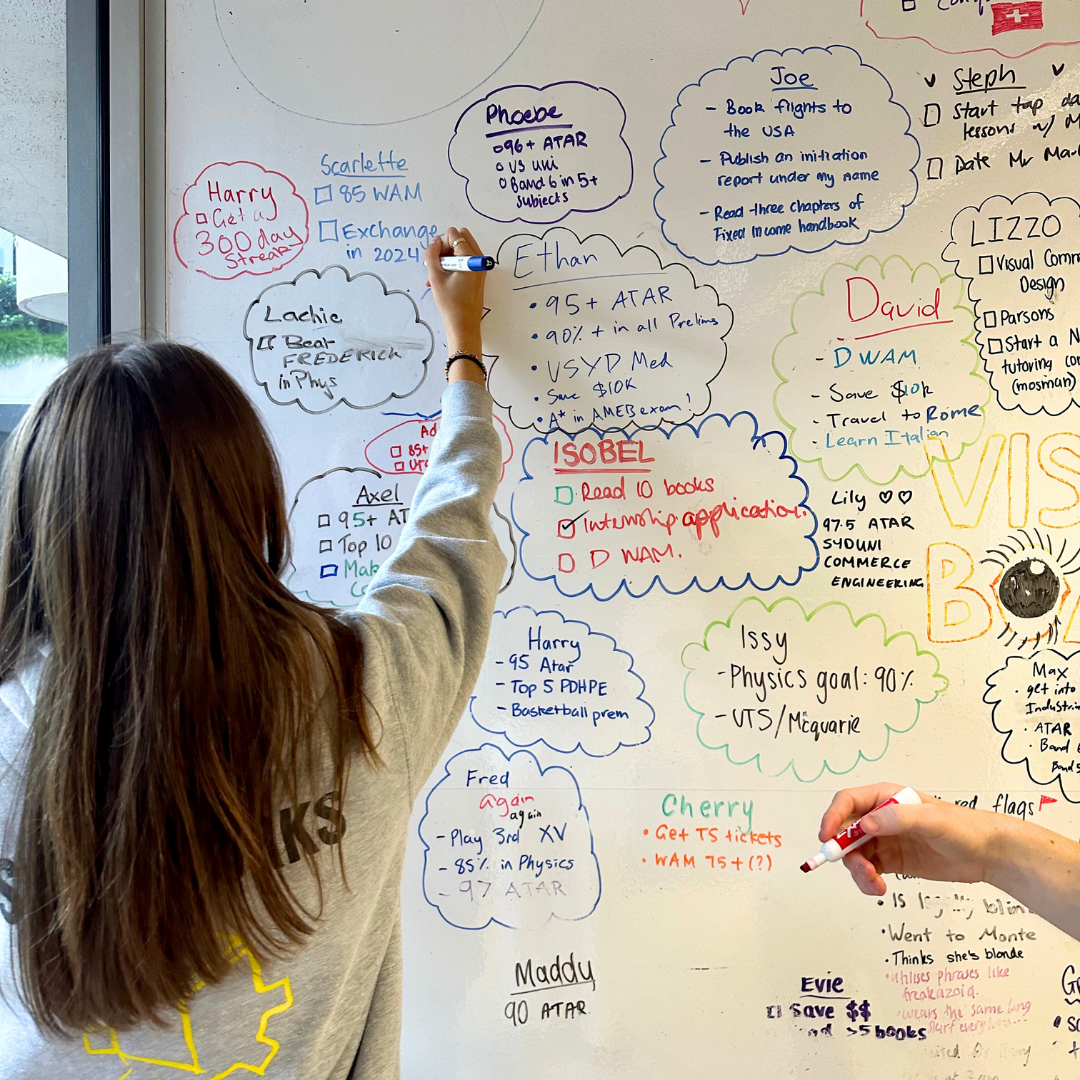 Phoebe
96+ ATAR
US uni
Band 6 in 5+
subjects
Joe
- Book flights to
the USA
- Publish an initiation
report under my name
- Read three chapters of
Fixed Income handbook
Steph
Start tap
lessons w/
Date Mr
Harry
Get a
300 day
Streak
Scarlette
85 WAM
Exchange
in 2024
Lachie
Beat
FREDERICK
in Phys
Ethan
• 95+ ATAR
• 90% + in all Prelims
• USYD Med
• Save $10K
• A* in AMEB exam!
David
- D WAM
- Save $10k
- Travel to Rome
- Learn Italian
LIZZO
Visual Comm
Design
Parsons
Start a N
tutoring
(mosman)
Ad
85+
Axel
95+ AT
Top 10
Mak
ISOBEL
Read 10 books
Internship application.
D WAM.
Lily ♡♡
97.5 ATAR
SYDUNI
COMMERCE
ENGINEERING
VIS
BO
Harry
- 95 Atar
- Top 5 PDHPE
- Basketball prem
Issy
- Physics goal: 90%
- UTS/Mcquarie
Max
• get into
Industri
• ATAR
• Band 6
Band 5
Fred
again
again
- Play 3rd XV
- 85% in Physics
- 97 ATAR
Cherry
• Get TS tickets
• WAM 75+(?)
red flags
• Is
• Went to Monte
• Thinks she's blonde
• utilises phrases like
freakazoid.
• wears the same
Maddy
90 ATAR
Evie
Save $$
>5 books
KS